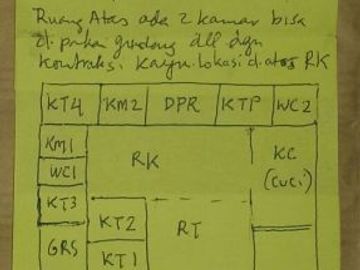 Ruang Atas ada 2 kamar bisa
di pakai gudang dll dgn
kontruksi kayu. lokasi diatas RK
KT4 KM2 DPR KTP WC2
KM1
WC1
RK
KC
(CUCi)
KT3
KT2
RT
GRS
KT1